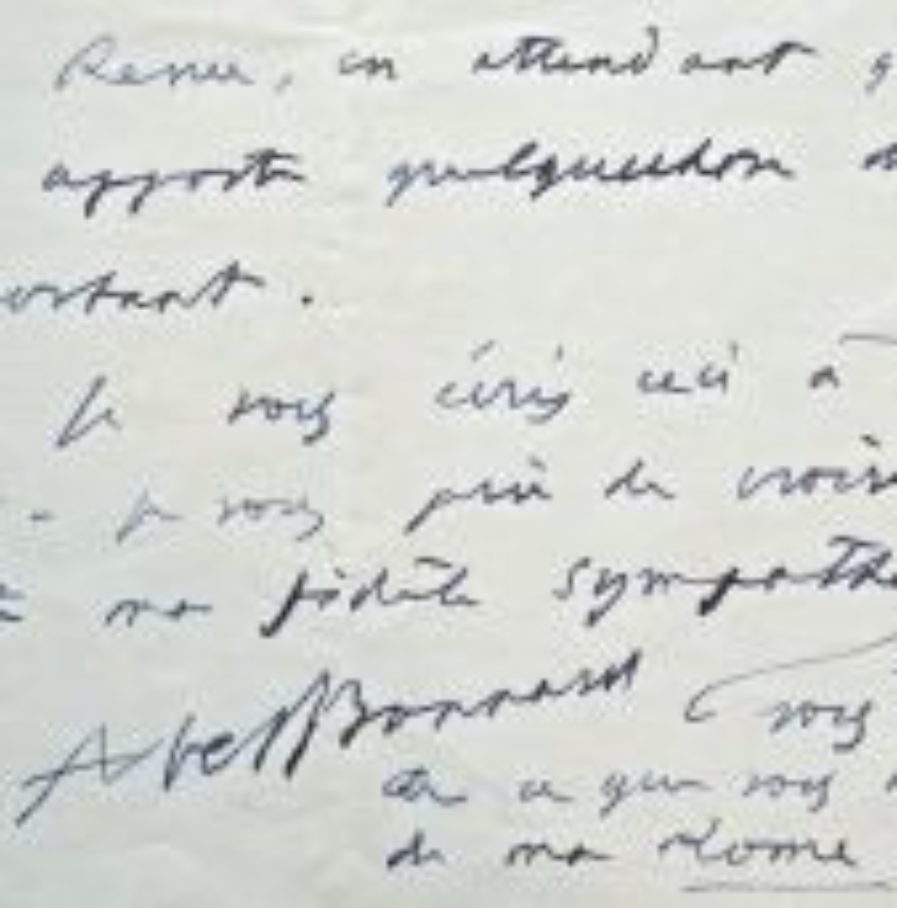 Renée, en attendant q
apporte quelquechose d
ortant.
Je vous écris ceci à
- Je vous prie de croire
à ma fidèle sympathie
Abel Bonnard vous
de ce que vous
de ma Rome